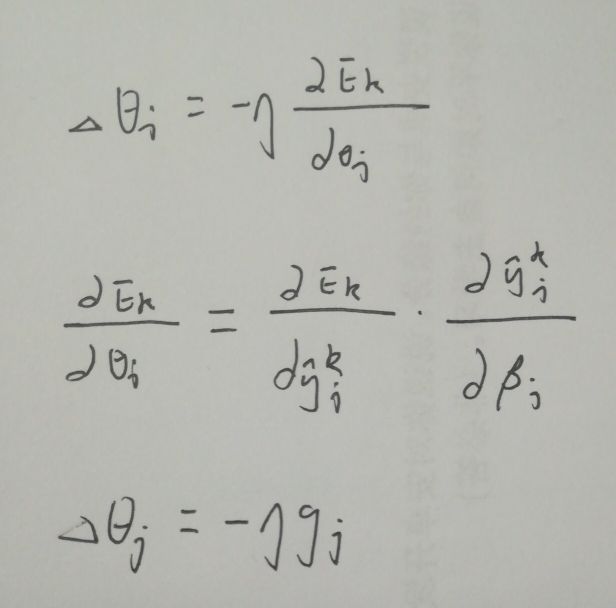 △θj = -η ∂Ek/∂θj
∂Ek/∂θj = ∂Ek/∂ŷj^k · ∂ŷj^k/∂βj
△θj = -ηgj